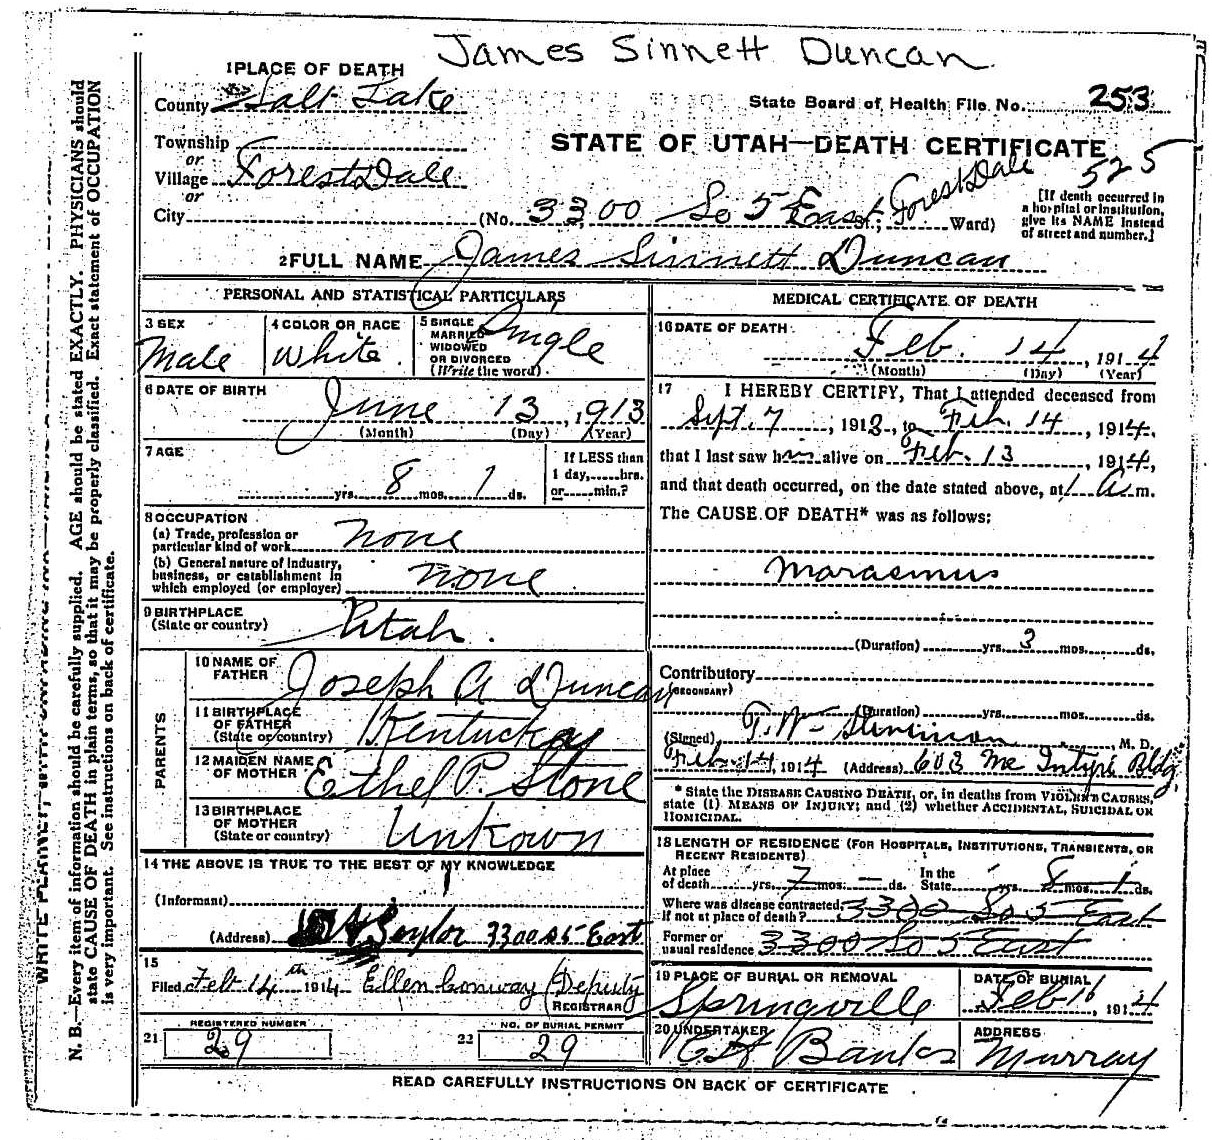 James Sinnett Duncan
1 PLACE OF DEATH
County Salt Lake
State Board of Health File No. 253
Township
or
Village ForestDale
or
City
STATE OF UTAH—DEATH CERTIFICATE
525
(No. 3300 So 5 East; ForestDale Ward)
[If death occurred in
a hospital or institution,
give its NAME instead
of street and number.]
2 FULL NAME James Sinnett Duncan
PERSONAL AND STATISTICAL PARTICULARS
3 SEX
Male
4 COLOR OR RACE
White
5 SINGLE
MARRIED
WIDOWED
OR DIVORCED
(Write the word)
Single
6 DATE OF BIRTH
June 13, 1913
(Month) (Day) (Year)
7 AGE
yrs. 8 mos. 1 ds.
If LESS than
1 day, hrs.
or min.?
8 OCCUPATION
(a) Trade, profession or
particular kind of work None
(b) General nature of industry,
business, or establishment in
which employed (or employer) None
9 BIRTHPLACE
(State or country) Utah.
PARENTS
10 NAME OF
FATHER Joseph A Duncan
11 BIRTHPLACE
OF FATHER
(State or country) Kentuckay
12 MAIDEN NAME
OF MOTHER Ethel P. Stone
13 BIRTHPLACE
OF MOTHER
(State or country) Unkown
14 THE ABOVE IS TRUE TO THE BEST OF MY KNOWLEDGE
(Informant)
(Address) 3300 So 5 East
15
Filed Feb 14th 1914 Ellen Conway (Deputy
REGISTRAR
REGISTERED NUMBER
21 29
NO. OF BURIAL PERMIT
22 29
MEDICAL CERTIFICATE OF DEATH
16 DATE OF DEATH
Feb. 14, 1914
(Month) (Day) (Year)
17 I HEREBY CERTIFY, That I attended deceased from
Sept. 7, 1913, to Feb. 14, 1914,
that I last saw him alive on Feb. 13, 1914,
and that death occurred, on the date stated above, at 1 A m.
The CAUSE OF DEATH* was as follows:
Marasmus
(Duration) yrs. 3 mos. ds.
Contributory
(SECONDARY)
(Duration) yrs. mos. ds.
(Signed) T. W. M. D.
Feb. 14, 1914 (Address) 603 Mc Intyre Bldg
* State the DISEASE CAUSING DEATH, or, in deaths from VIOLENT CAUSES,
state (1) MEANS OF INJURY; and (2) whether ACCIDENTAL, SUICIDAL OR
HOMICIDAL.
18 LENGTH OF RESIDENCE (FOR HOSPITALS, INSTITUTIONS, TRANSIENTS, OR
RECENT RESIDENTS)
At place
of death yrs. 7 mos. — ds.
In the
State yrs. 8 mos. 1 ds.
Where was disease contracted,
if not at place of death? 3300 So 5 East
Former or
usual residence 3300 So 5 East
19 PLACE OF BURIAL OR REMOVAL
Springville
DATE OF BURIAL
Feb 16, 1914
20 UNDERTAKER
Banks
ADDRESS
Murray
READ CAREFULLY INSTRUCTIONS ON BACK OF CERTIFICATE
N. B.—Every item of information should be carefully supplied. AGE should be stated EXACTLY. PHYSICIANS should
state CAUSE OF DEATH in plain terms, so that it may be properly classified. Exact statement of OCCUPATION
is very important. See instructions on back of certificate.